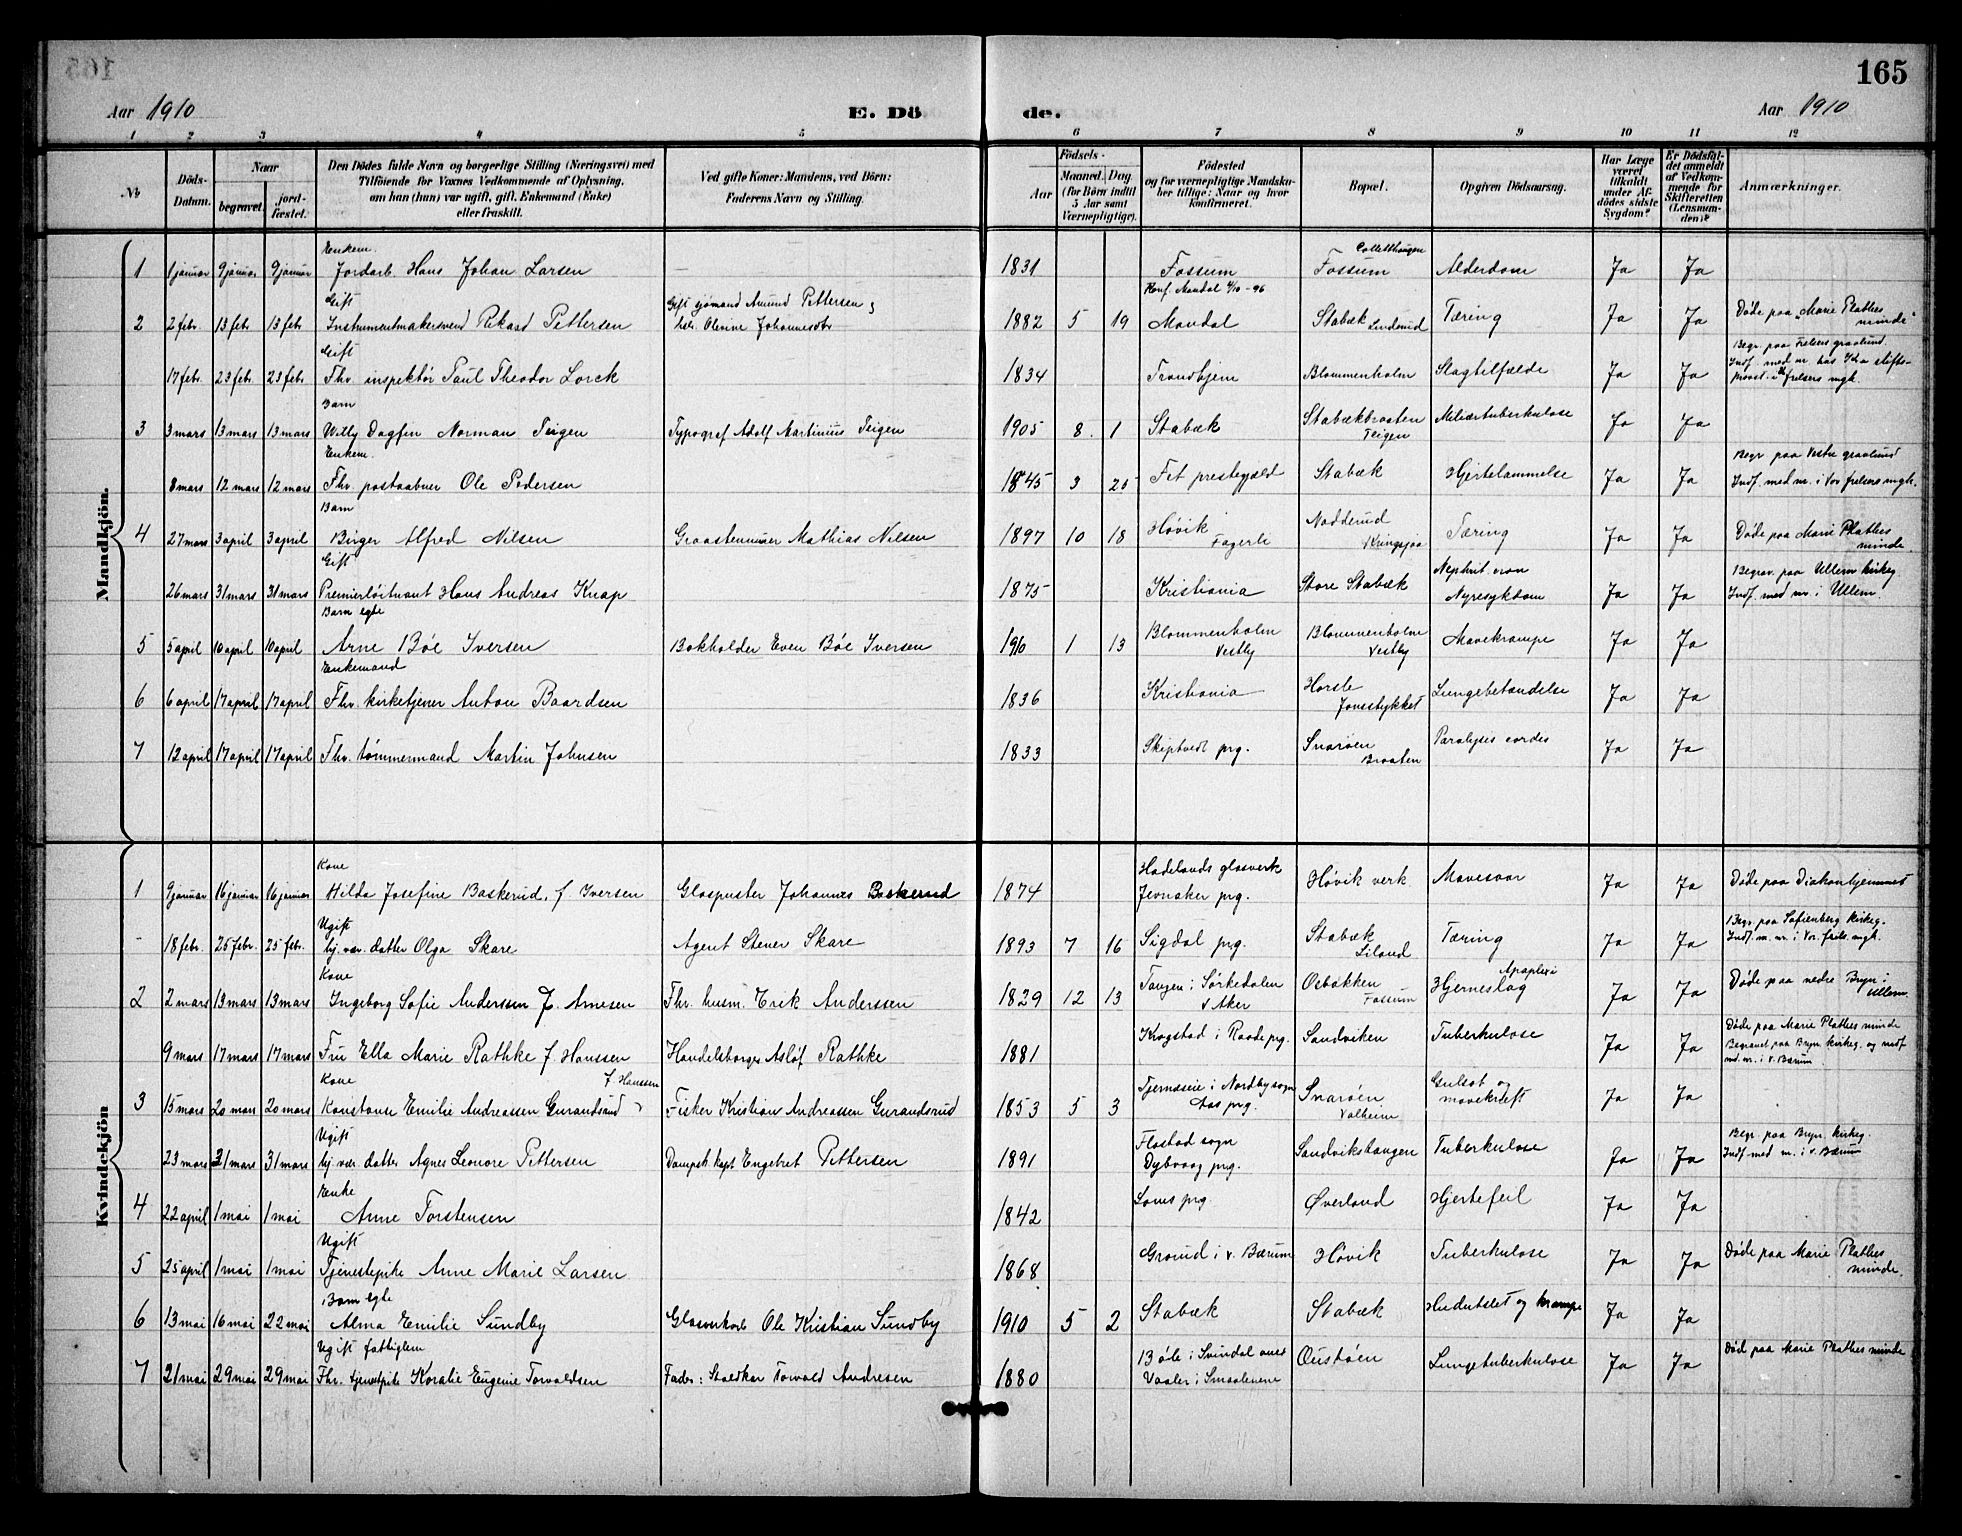 165
Aar 1910
E. Dö de.
Aar 1910
1 2 3 4 5 6 7 8 9 10 11 12
No
Döds-Datum.
Naar
begravet.
jord-fæstet.
Den Dödes fulde Navn og borgerlige Stilling (Næringsvei) med
Tilföiende for Voxnes Vedkommende af Oplysning,
om han (hun) var ugift, gift, Enkemand (Enke)
eller fraskilt.
Ved gifte Koner: Mandens, ved Börn:
Faderens Navn og Stilling.
Födsels-
Aar
Maaned. Dag.
(for Börn indtil
5 Aar samt
Værnepligtige).
Födested
og for værnepligtige Mandska-
ber tillige: Naar og hvor
konfirmeret.
Bopæl.
Opgiven Dödsaarsag.
Har Læge
været
tilkaldt
under Af-
dödes sidste
Sygdom?
Er Dödsfal-
det anmeldt
af Vedkom-
mende for
Skifteretten
(Lensman-
den)?
Anmærkninger.
Mandkjön.
Enkem.
1 1 januar 9 januar 9 januar Jordarb. Hans Johan Larsen — 1831 Fossum Fossum Colletthaugen Alderdom Ja Ja
Gift
2 2 febr 13 febr 13 febr Instrumentmakersvend Rikard Pettersen Gift sjømand Amund Pettersen &
Olevine Johannesdtr 1882 5 19 Konf. Mandal 4/10-96
Mandal Stabæk Linderud Tæring Ja Ja Døde paa "Marie Plathes
minde"
Gift
17 febr. 23 febr. 23 febr Fhv. inspektør Paul Theodor Lorck 1834 Trondhjem Blommenholm Slagtilfælde Ja Ja Begr. paa Frelsers gravlund.
Indf. med nr. hos
provst i frelsers mgh.
Barn
3 3 mars 13 mars 13 mars Willy Dagfin Norman Teigen Typograf Adolf Martinius Teigen 1905 8 1 Stabæk Stabækbraaten
Teigen Miliærtuberkulose Ja Ja
Enkem.
8 mars 12 mars 12 mars Fhv. postaabner Ole Pedersen 1845 3 25 Fet prestegjeld Stabæk Hjertelammelse Ja Ja Begr paa Vestre gravlund
Indf. med nr. i Vor frelsers mgh.
Barn
4 27 mars 3 april 3 april Birger Alfred Nilsen Graastensmurer Mathias Nilsen 1897 10 18 Høvik
Fagerli Nadderud
Kringsjaa Tæring Ja Ja Døde paa Marie Plathes
minde.
Gift
26 mars 31 mars 31 mars Premierløitnant Hans Andreas Knap 1875 Kristiania Store Stabæk Nephrit. cron
Nyresykdom Ja Ja Begrav. paa Ullern kirkeg
Indf. med nr. i Ullern.
Barn egte
5 5 april 10 april 10 april Arne Böe Iversen Bokholder Even Böe Iversen 1910 1 13 Blommenholm
Vestby Blommenholm
Vestby Mavekrampe Ja Ja
Enkemand
6 6 april 17 april 17 april Fhv. kirketjener Anton Baardsen 1836 Kristiania Horsle
Jonsstykket Lungebetændelse Ja Ja
7 12 april 17 april 17 april Fhv. tømmermand Martin Johnsen 1833 Skiptvedt prg. Snarøen
Braaten Paralyses cordes Ja Ja
Kvindekjön
Kone
1 9 januar 16 januar 16 januar Hilda Josefine Baskerud, f Iversen Glaspuster Johannes Baskerud 1874 Hadelands glasverk
Jevnaker prg. Høvik verk Mavesaar Ja Ja Døde paa Diakonhjemmet
Ugift
- 18 febr. 25 febr. 25 febr. hj. vær. datter Olga Skare Agent Stener Skare 1893 7 16 Sigdal prg. Stabæk
Liland Tæring Ja Ja Begr. paa Sofienberg kirkeg.
Indf. m. nr. i Vor. frels. mgh.
Kone
2 2 mars 13 mars 13 mars Ingeborg Sofie Anderssen f. Arnesen Fhv. husm. Erik Anderssen 1829 12 13 Tangen i Sørkedalen
V Aker Osbakken
Fossum Apoplexi
Hjerneslag Ja Ja Døde paa nedre Bryn i
Ullern
9 mars 17 mars 17 mars Fru Ella Marie Rathke f. Hanssen Handelsborger Asløf Rathke 1881 Krogstad i Raade prg. Sandviken Tuberkulose Ja Ja Døde paa Marie Plathes minde
Begravet paa Bryn kirkeg. og indf
md. nr. i V. Bærum
Kone f Hanssen
3 15 mars 20 mars 20 mars Konstanse Emilie Andreassen Gurandsrud Fisker Kristian Andreassen Gurandsrud 1853 5 3 Tjernæseie i Nordby sogn
Aas prg. Snarøen
Valheim Gulsot og
mavekræft Ja Ja
Ugift
23 mars 31 mars 31 mars hj. vær. datter Agnes Leonore Pettersen Dampsk. kapt Engebret Pettersen 1891 Flostad sogn
Dybvaag prg. Sandvikshaugen Tuberkulose Ja Ja Begr. paa Bryn kirkeg.
Indf med nr. i V. Bærum
Enke
4 22 april 1 mai 1 mai Anne Torstensen 1842 Loms prg. Øverland Hjertefeil Ja Ja
Ugift
5 25 april 1 mai 1 mai Tjenestepike Anne Marie Larsen 1868 Grorud i v. Bærum Høvik Tuberkulose Ja Ja Døde paa Marie Plathes
minde.
Barn egte
6 13 mai 16 mai 22 mai Alma Emilie Sundby Glasverkarb Ole Kristian Sundby 1910 5 2 Stabæk Stabæk Hudutslet og krampe Ja Ja
Ugift fattiglem
7 21 mai 29 mai 29 mai Fhv. tjenestpike Koralie Eugenie Torvaldsen Fader: Staldkar Torvald Andresen 1880 Bøle i Svindal anex
Vaaler i Smaalenene Oustøen Lungetuberkulose Ja Ja Død paa Marie Plathes minde